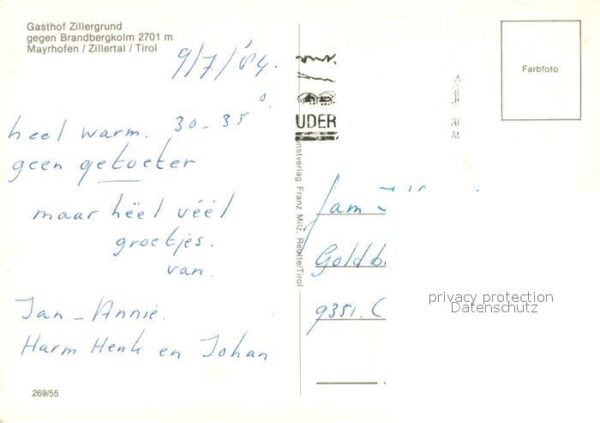 Gasthof Zillergrund
gegen Brandbergkolm 2701 m
Mayrhofen / Zillertal / Tirol
9/7/'84.
heel warm. 30-35°.
geen getoeter
maar hëel vééL
groetjes.
van.
Jan - Annie.
Harm Henk en Johan
269/55
UDER
Kunstverlag Franz Milz, Reutte/Tirol
Farbfoto
fam
Goldb
9351. C
privacy protection
Datenschutz